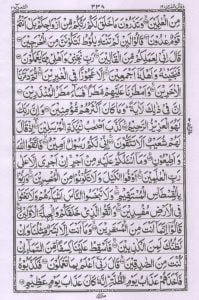 ۳۳۸
مِنَ الْعٰلَمِيْنَ ۙ وَتَذَرُوْنَ مَا خَلَقَ لَكُمْ رَبُّكُمْ مِّنْ اَزْوَاجِكُمْ ؕ بَلْ اَنْتُمْ
قَوْمٌ عٰدُوْنَ قَالُوْا لَئِنْ لَّمْ تَنْتَهِ يٰلُوْطُ لَتَكُوْنَنَّ مِنَ الْمُخْرَجِيْنَ
قَالَ اِنِّيْ لِعَمَلِكُمْ مِّنَ الْقَالِيْنَ رَبِّ نَجِّنِيْ وَاَهْلِيْ مِمَّا يَعْمَلُوْنَ
فَنَجَّيْنٰهُ وَاَهْلَهٗۤ اَجْمَعِيْنَ اِلَّا عَجُوْزًا فِي الْغٰبِرِيْنَ ثُمَّ
دَمَّرْنَا الْاٰخَرِيْنَ وَاَمْطَرْنَا عَلَيْهِمْ مَّطَرًا فَسَآءَ مَطَرُ الْمُنْذَرِيْنَ
اِنَّ فِيْ ذٰلِكَ لَاٰيَةً وَمَا كَانَ اَكْثَرُهُمْ مُّؤْمِنِيْنَ وَاِنَّ رَبَّكَ
لَهُوَ الْعَزِيْزُ الرَّحِيْمُ كَذَّبَ اَصْحٰبُ لْئَيْكَةِ الْمُرْسَلِيْنَ اِذْ قَالَ
لَهُمْ شُعَيْبٌ اَلَا تَتَّقُوْنَ اِنِّيْ لَكُمْ رَسُوْلٌ اَمِيْنٌ فَاتَّقُوا اللّٰهَ
وَاَطِيْعُوْنِ وَمَاۤ اَسْئَلُكُمْ عَلَيْهِ مِنْ اَجْرٍ اِنْ اَجْرِيَ اِلَّا عَلٰى
رَبِّ الْعٰلَمِيْنَ اَوْفُوا الْكَيْلَ وَلَا تَكُوْنُوْا مِنَ الْمُخْسِرِيْنَ وَزِنُوْا
بِالْقِسْطَاسِ الْمُسْتَقِيْمِ وَلَا تَبْخَسُوا النَّاسَ اَشْيَآءَهُمْ وَلَا تَعْثَوْا
فِي الْاَرْضِ مُفْسِدِيْنَ وَاتَّقُوا الَّذِيْ خَلَقَكُمْ وَالْجِبِلَّةَ الْاَوَّلِيْنَ
قَالُوْۤا اِنَّمَاۤ اَنْتَ مِنَ الْمُسَحَّرِيْنَ وَمَاۤ اَنْتَ اِلَّا بَشَرٌ مِّثْلُنَا وَاِنْ
نَّظُنُّكَ لَمِنَ الْكٰذِبِيْنَ فَاَسْقِطْ عَلَيْنَا كِسَفًا مِّنَ السَّمَآءِ اِنْ
كُنْتَ مِنَ الصّٰدِقِيْنَ قَالَ رَبِّيْۤ اَعْلَمُ بِمَا تَعْمَلُوْنَ فَكَذَّبُوْهُ
فَاَخَذَهُمْ عَذَابُ يَوْمِ الظُّلَّةِ اِنَّهٗ كَانَ عَذَابَ يَوْمٍ عَظِيْمٍ